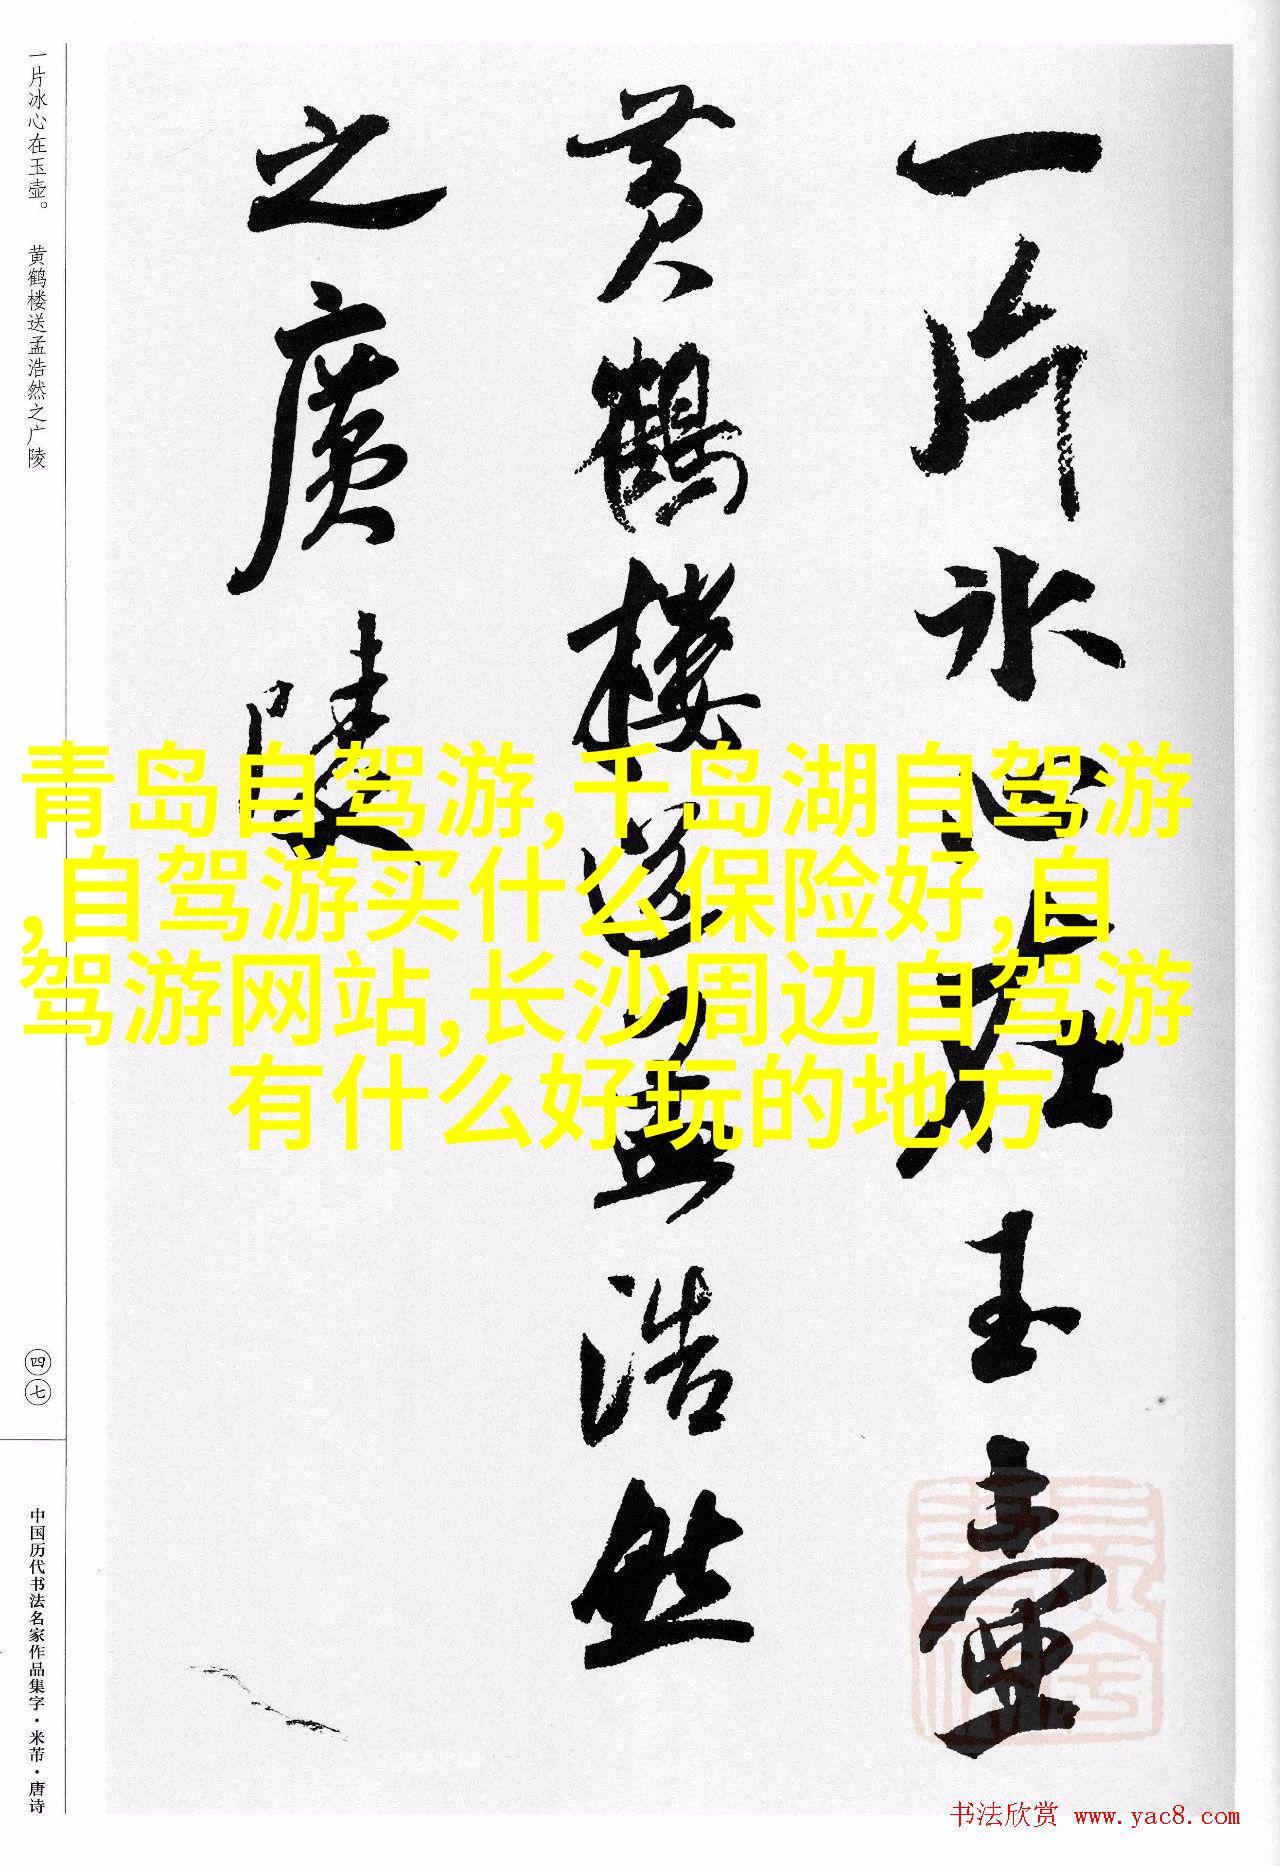 一片冰心在玉壶
黄鹤楼送孟浩然
之廣陵
一片冰心在玉壶。 黄鹤楼送孟浩然之广陵
四七
中国历代书法名家作品集字·米芾·唐诗
青岛自驾游,千岛湖自驾游
,自驾游买什么保险好,自
驾游网站,长沙周边自驾游
有什么好玩的地方
书法欣赏 www.yac8.com